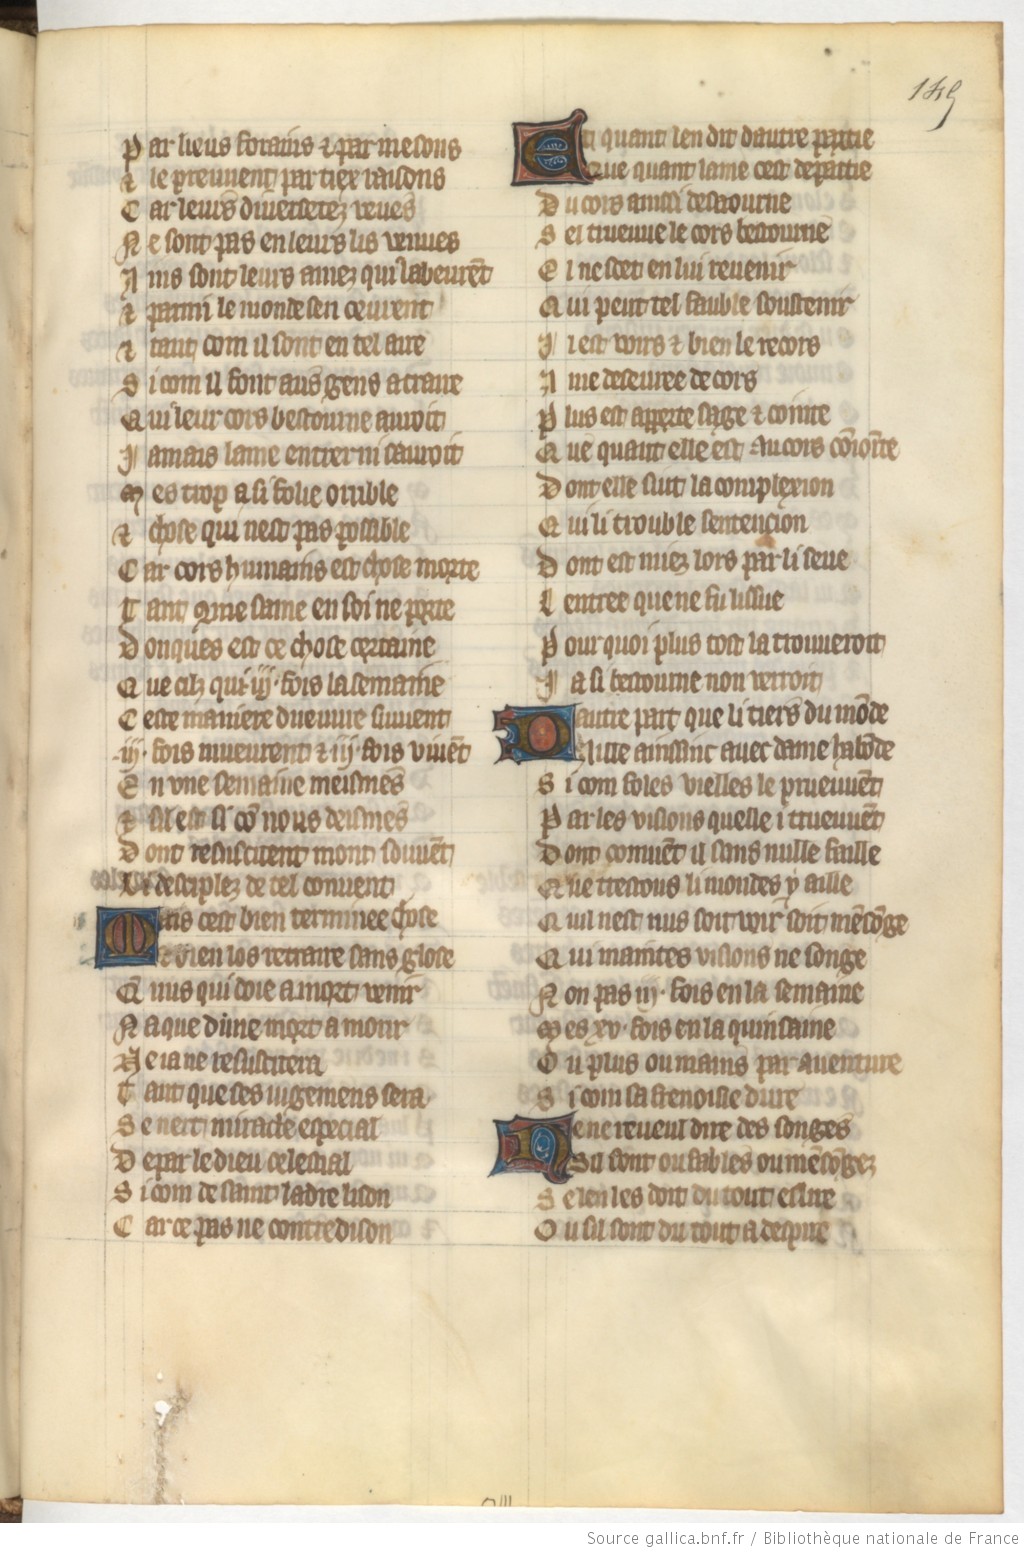 149
Par lieus forains & par mesons
& le preuvent par tiex raisons
Car leurs diversetez veues
Ne sont pas en leurs lis venues
Ains sont leurs amez qui labeurēt
& parmi le monde sen ceurent
& tant com il sont en tel aire
Si com il font aus gens acraire
Qui leur cors bestourne auroit
Jamais lame entrer ni sauroit
Mes trop a si folie orrible
& chose qui nest pas possible
Car cors humains est chose morte
Tant 9me same en soi ne porte
Donques est ce chose certaine
Que cilz qui .iij. fois la semaine
Ceste maniere dueuvre sivvent
.iij. fois muevrent & iij. fois vivēt
En une semaine meismes
& sil est si cō nous deismes
Dont resuscitent mont souvēt
Li desciplez de tel couvent
Mais cest bien terminee chose
& bien los retraire sans glose
Q̄ nus qui doie a mort venir
Na que dune mort a morir
Ne ja ne resuscitera
Tant que ses jugemens sera
Se nert miracle especial
De par le dieu celestial
Si com de saint ladre lison
Car ce pas ne contredison
Et quant len dit dautre partie
Que quant lame cest departie
Du cors ainssi destourne
Sei trueuve le cors bestourne
El ne scet en lui revenir
Qui peut tel fauble soustenir
Il est voirs & bien le recors
Ame desevree de cors
Plus est apperte sage & cointe
Que quant elle est au cors cōiointe
Dont elle suit la complexion
Qui li trouble sentencion
Dont est miez lors par li seue
Lentree que ne fu lissue
Pour quoi plus tost la trouveroit
Ja si bestourne non verroit
Dautre part que li tiers du mōde
Aille ainssint avec dame habōde
Si com foles vielles le pruevvēt
Par les visions quelle i truevvēt
Dont couvēt il sans nulle faille
Que trestous li mondes y aille
Quil nest nus soit voir soit mēcōge
Qui maintes visions ne songe
Non pas iij. fois en la semaine
Mes xv. fois en la quinsaine
Ou plus ou mains par aventure
Si com sa frenoisie dure
Ne ne reveul dire des songes
Sil sont ou fables ou mēcōgez
Se len les doit du tout eslire
Ou sil sont du tout a despire
Source gallica.bnf.fr / Bibliothèque nationale de France